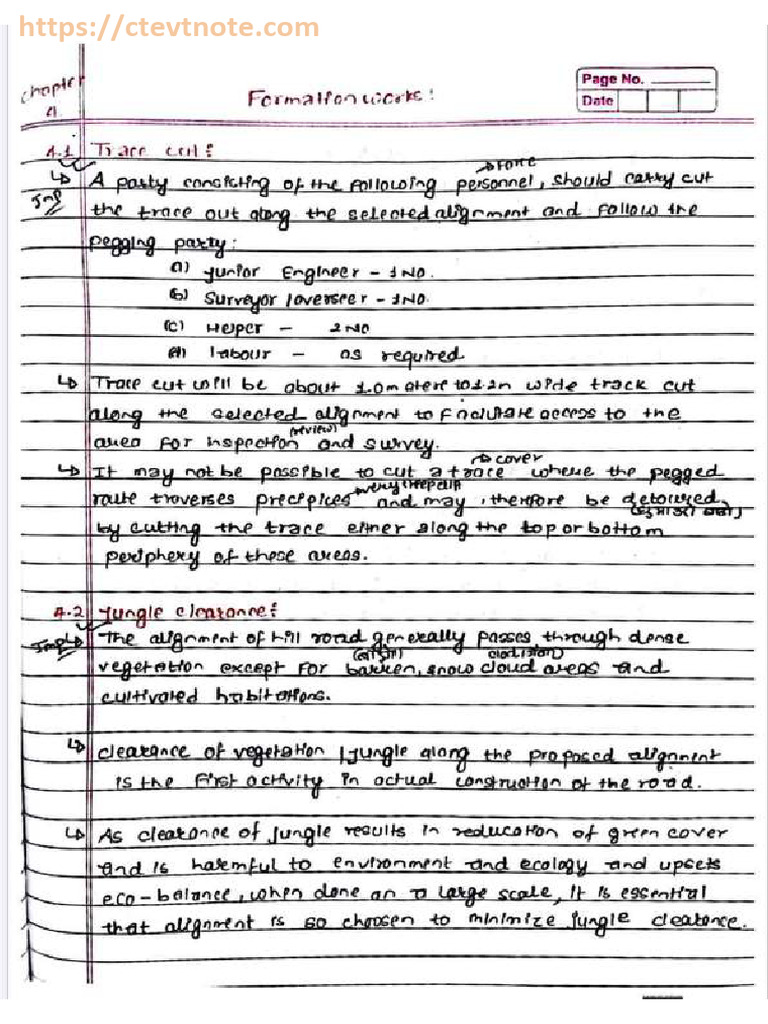 https://ctevtnote.com
Page No.
Date
Chapter
4
Formation works:
4.1 Trace cut:
→ force
Imp
↳ A party consisting of the following personnel, should carry out
the trace out along the selected alignment and follow the
pegging party:
a) Junior Engineer - 1 NO.
(b) Surveyor/overseer - 1 NO.
(c) Helper - 2 NO
(d) labour - as required
↳ Trace cut will be about 1.0 metere to 1.2m wide track cut
along the selected alignment to facilitate access to the
(review)
area for inspection and survey.
→ cover
↳ It may not be possible to cut a trace where the pegged
→ very steep cliff
route traverses precipices and may, therefore be detoured,
by cutting the trace either along the top or bottom
periphery of these areas.
4.2 Jungle clearance:
Imp
↳ The alignment of hill road generally passes through dense
vegetation except for barren, snow cloud areas and
cultivated habitations.
↳ clearance of vegetation / jungle along the proposed alignment
is the first activity in actual construction of the road.
↳ As clearance of jungle results in reducation of green cover
and is harmful to environment and ecology and upsets
eco-balance, when done on a large scale, it is essential
that alignment is so choosen to minimize jungle clearance.